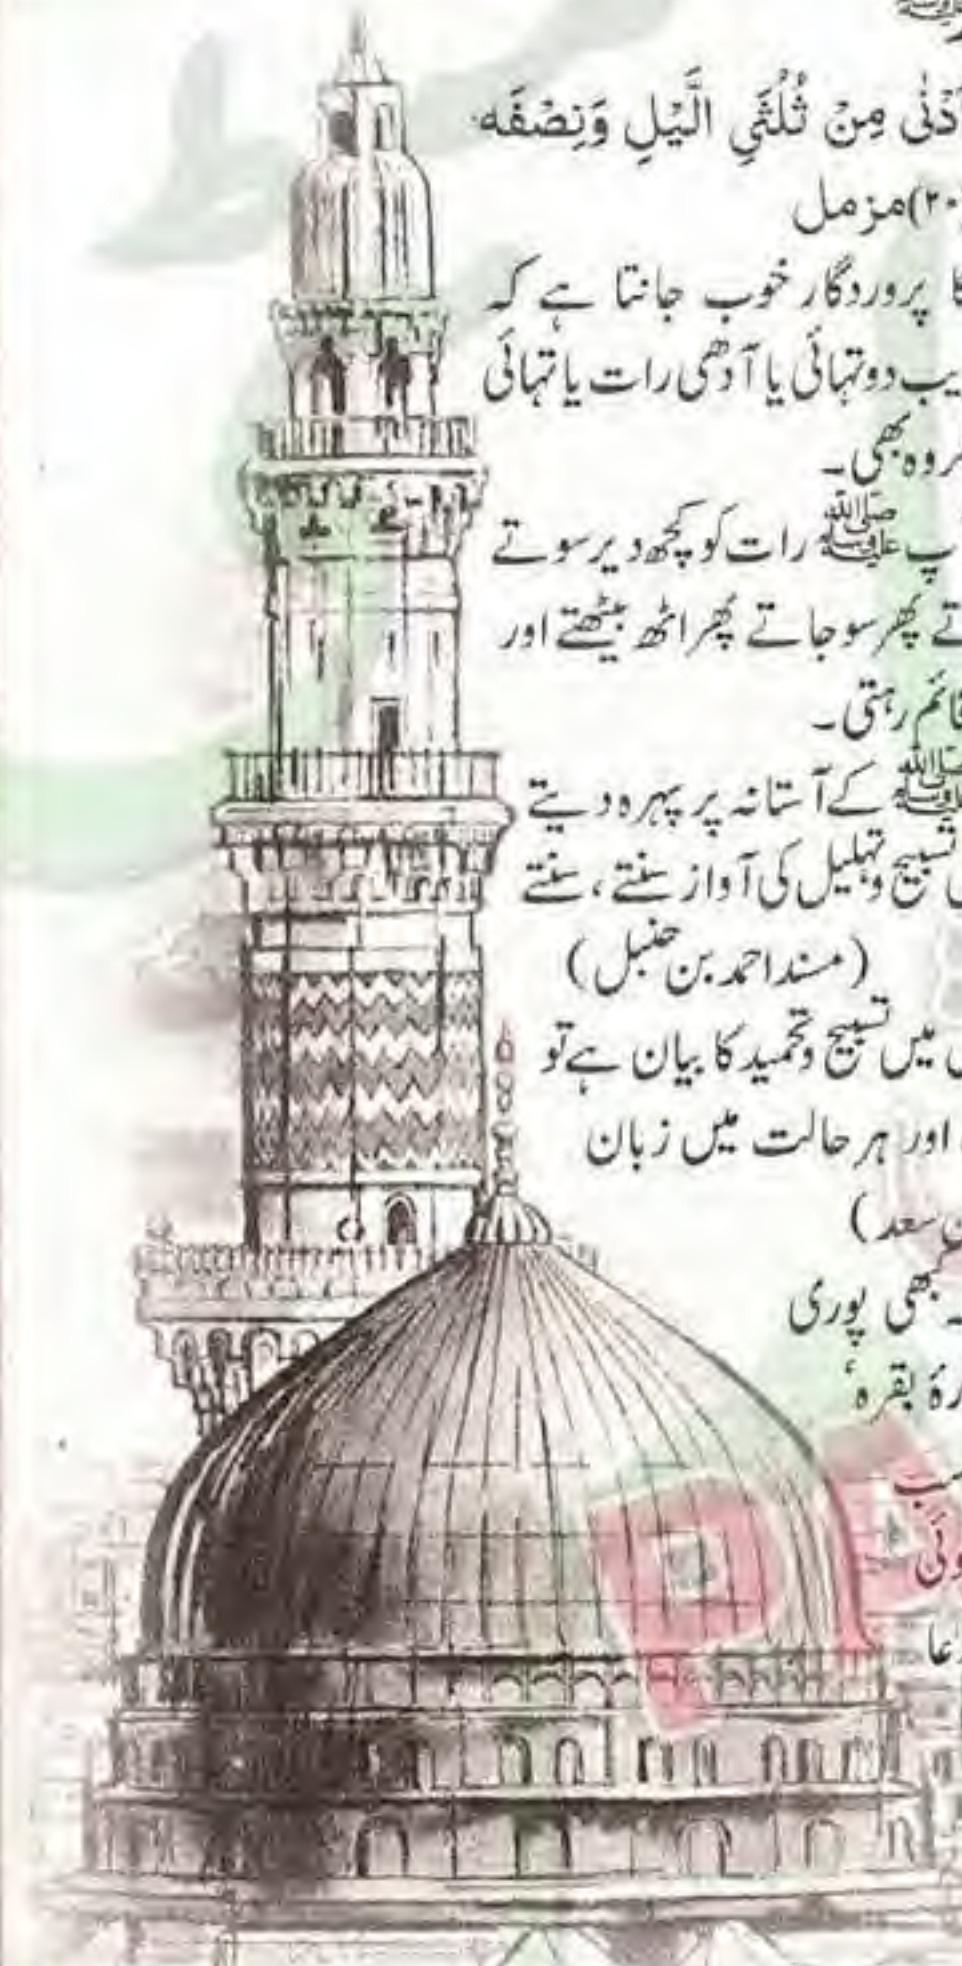 ﷺ
اَدْنٰى مِنْ ثُلُثَيِ الَّيْلِ وَنِصْفَه
۲۰) مزمل
کا پروردگار خوب جانتا ہے کہ
دو تہائی یا آدھی رات یا تہائی
وہ بھی۔
پ ﷺ رات کو کچھ دیر سوتے
تے پھر سو جاتے پھر اٹھ بیٹھتے اور
قائم رہتی۔
ﷺ کے آستانہ پر پہرہ دیتے
تسبیح و تہلیل کی آواز سنتے، سنتے
(مسند احمد بن حنبل)
میں تسبیح و تحمید کا بیان ہے تو
اور ہر حالت میں زبان
سعد)
کبھی پوری
رۂ بقرہ،